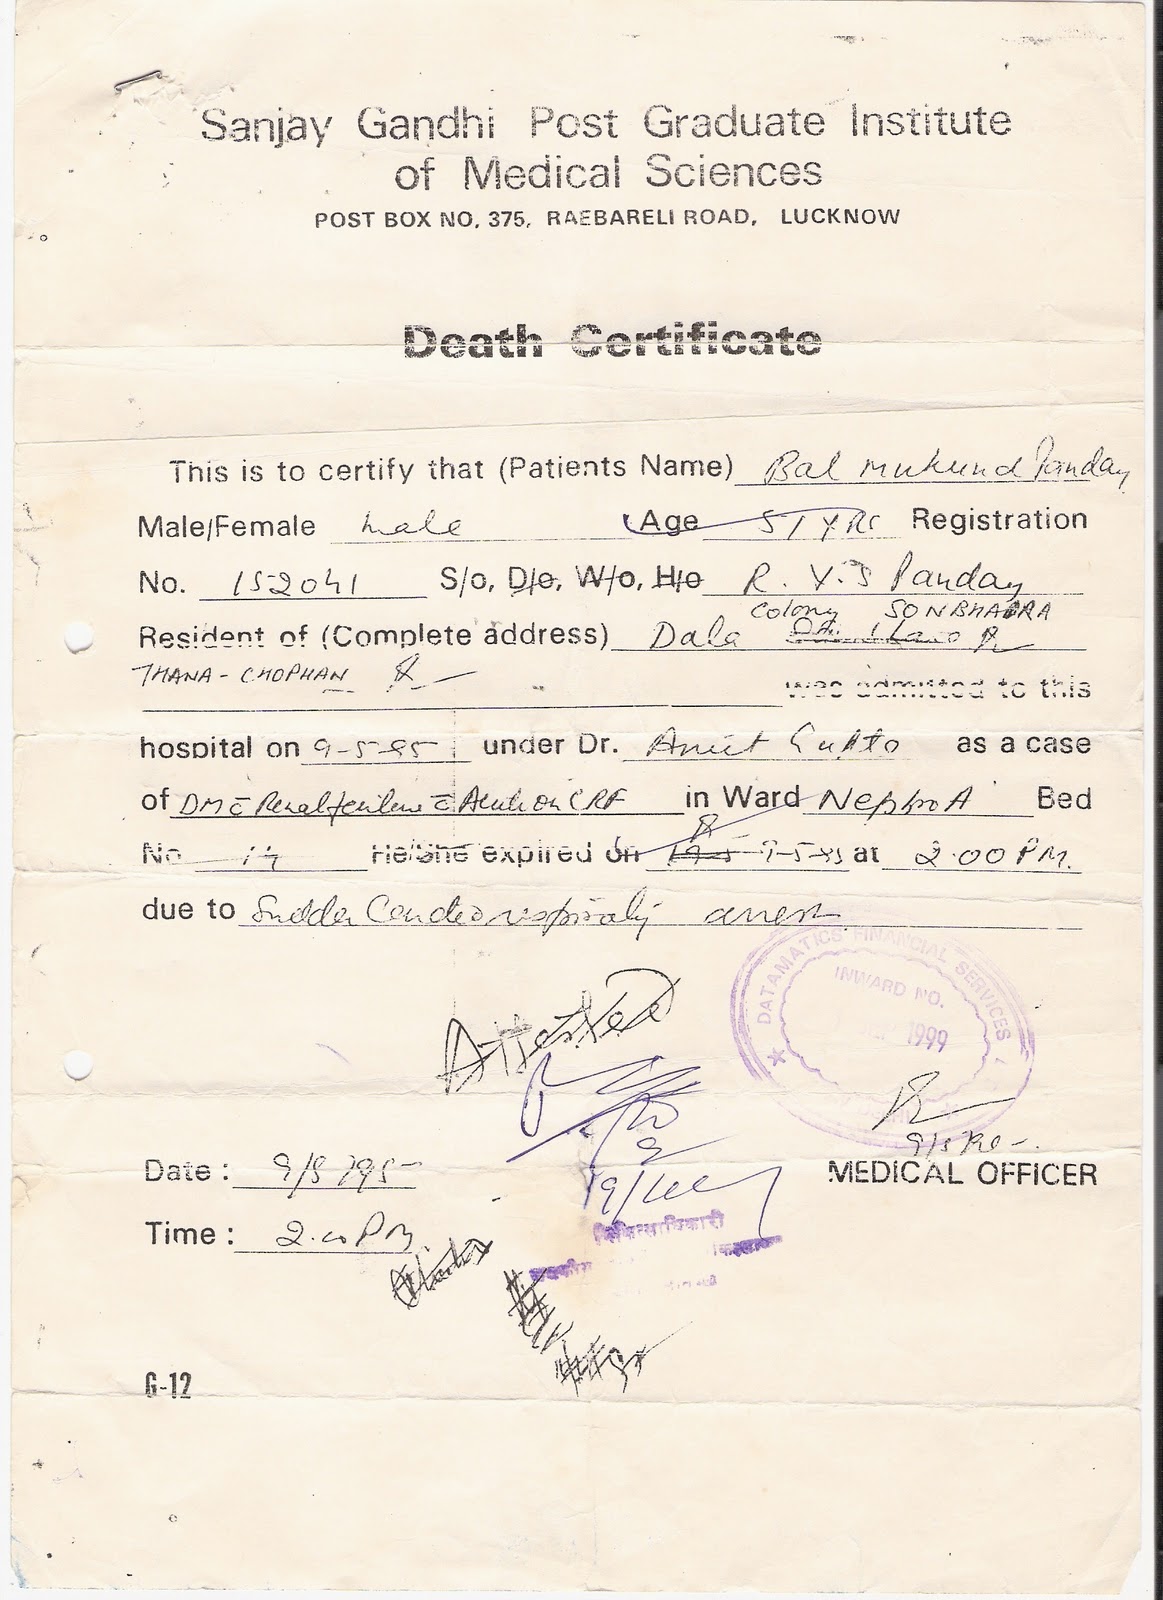 Sanjay Gandhi Post Graduate Institute
of Medical Sciences
POST BOX NO. 375, RAEBARELI ROAD, LUCKNOW
Death Certificate
This is to certify that (Patients Name) Bal mukund Panday
Male/Female male Age 51 YRS Registration
No. 152041 S/o, D/o, W/o, H/o R. Y. S Panday
Colony SONBHADRA
Resident of (Complete address) Dala
THANA - CHOPHAN
was admitted to this
hospital on 9-5-95 under Dr. Amit Gupta as a case
of DM c Renal failure c CRF in Ward Nephro A Bed
No 14 He/She expired on 9-5-95 at 2.00 PM.
due to Sudden Cardiorespiratory arrest
Attested
DATAMATICS FINANCIAL SERVICES
INWARD NO.
1999
Date : 9/5/95
MEDICAL OFFICER
Time : 2.00 PM
चिकित्साधिकारी
G-12